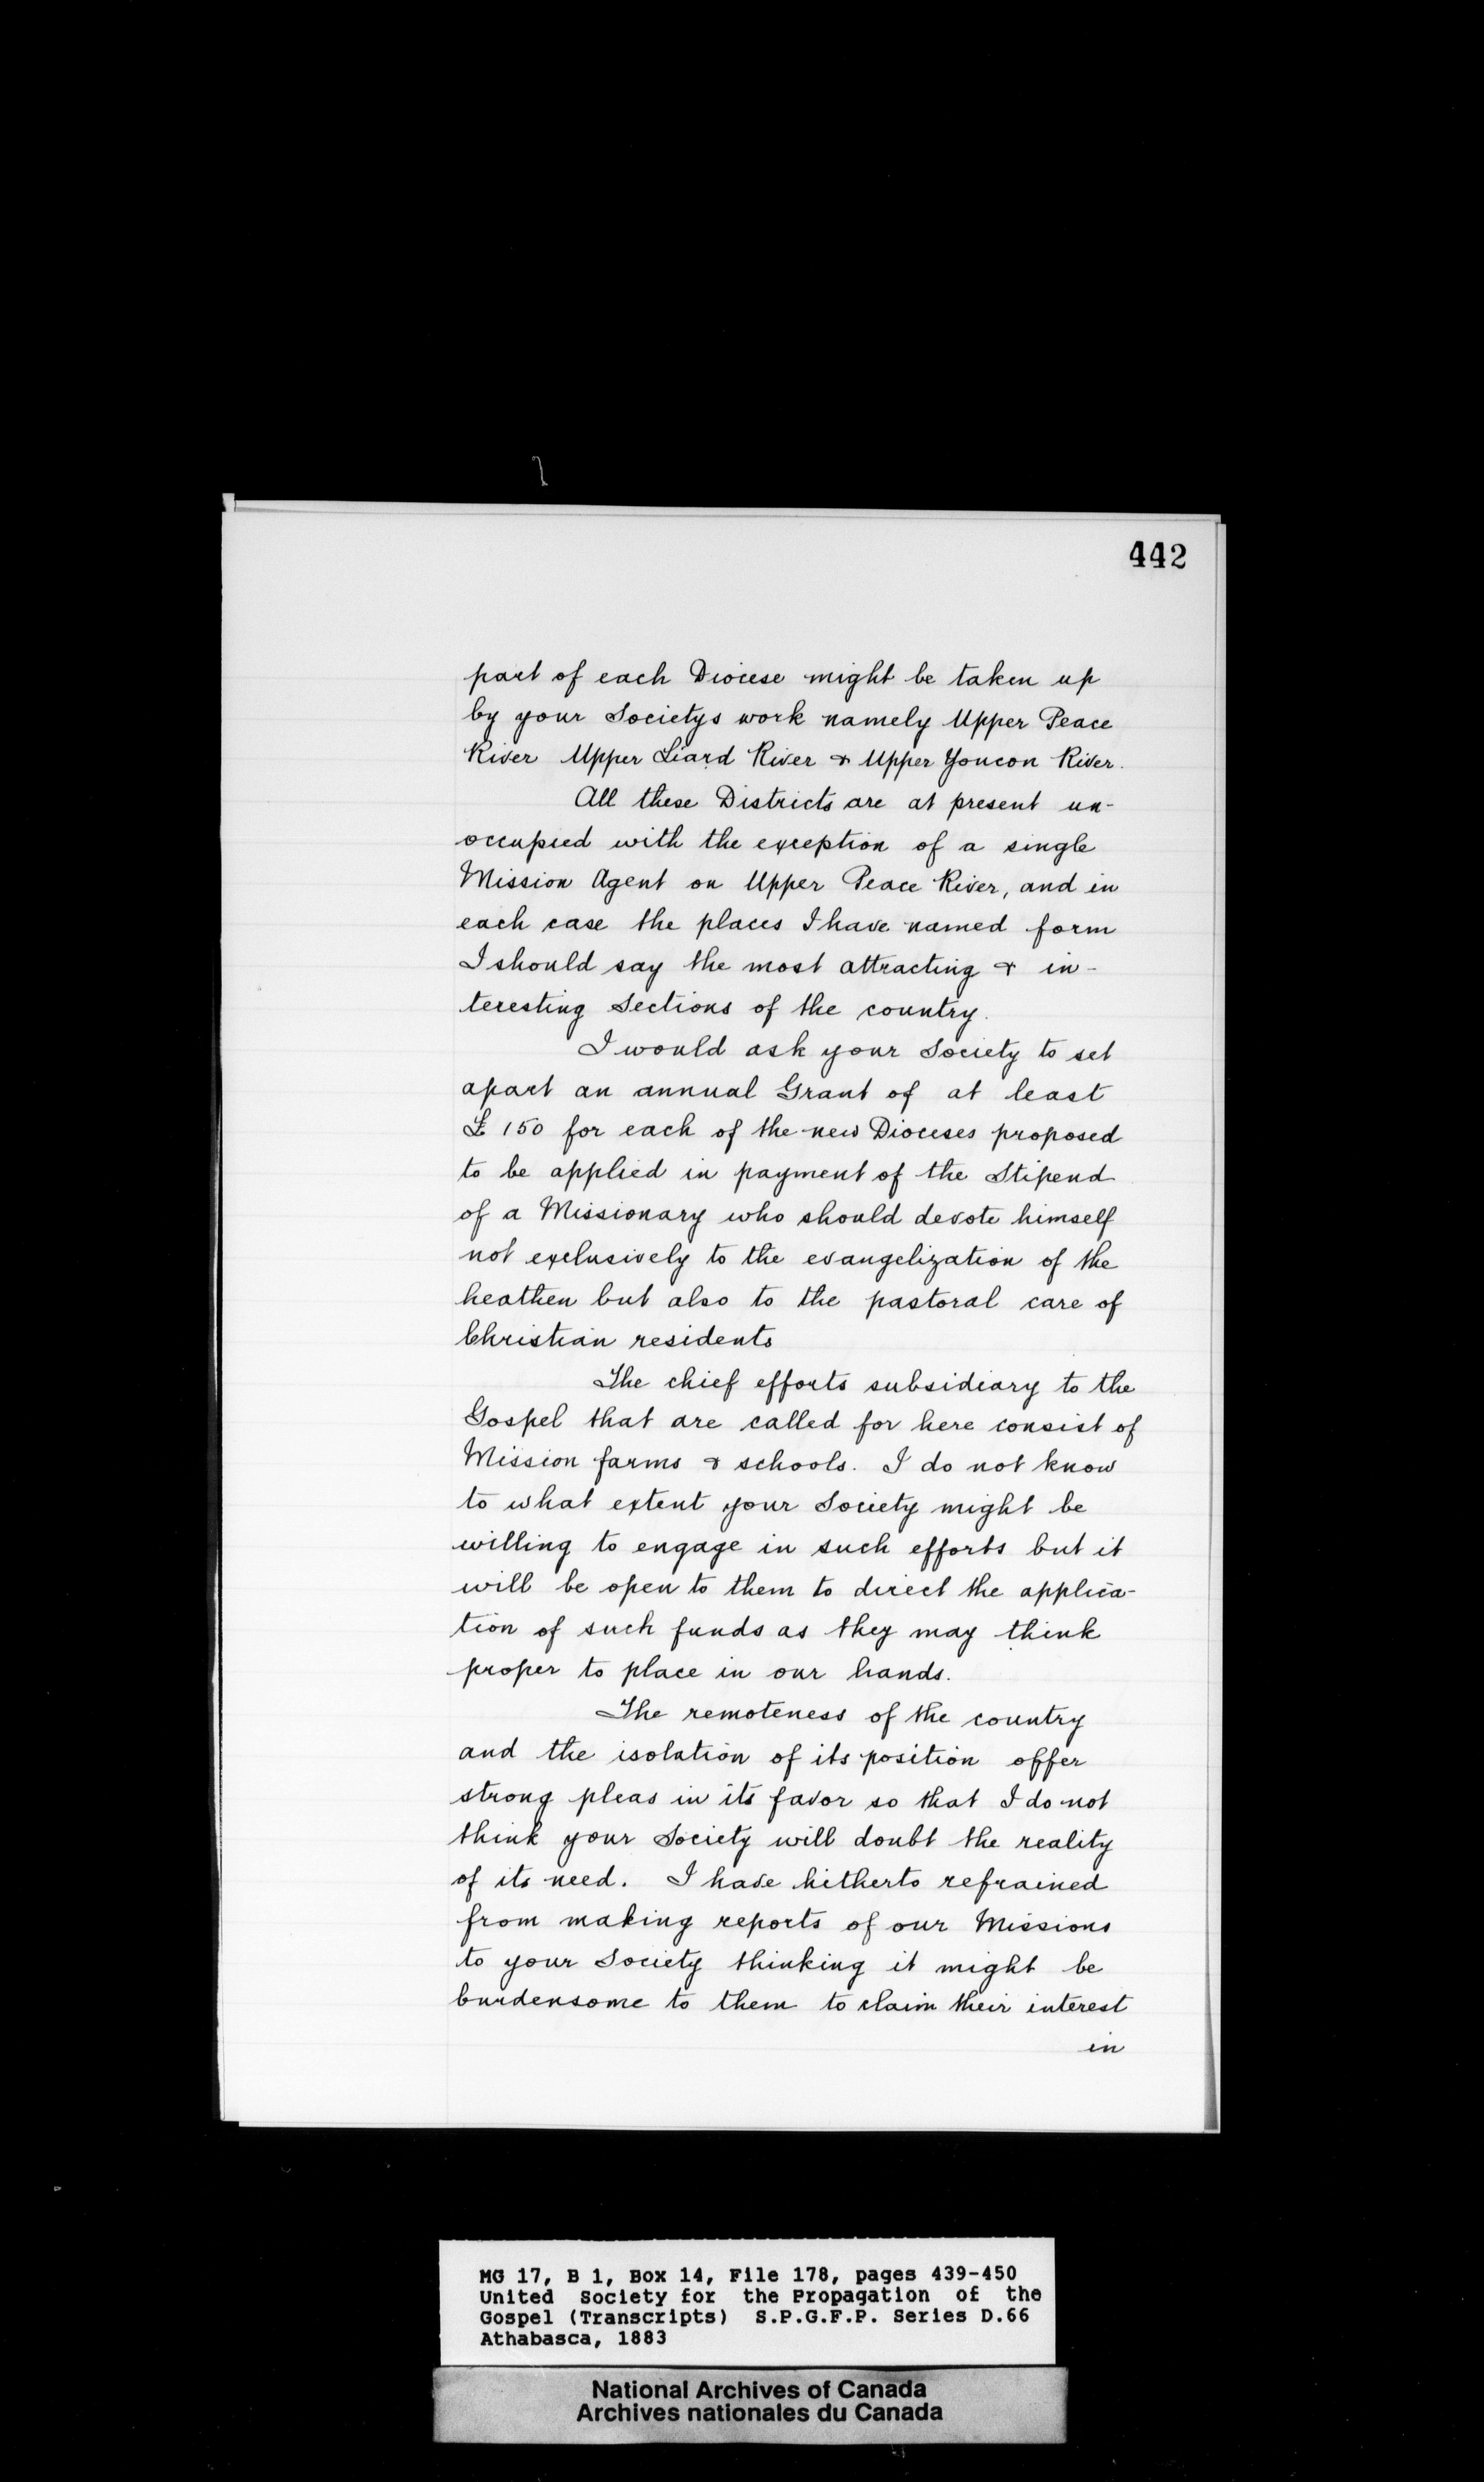 442
part of each Diocese might be taken up
by your Societys work namely Upper Peace
River Upper Liard River & Upper Youcon River.
All these Districts are at present un-
occupied with the exception of a single
Mission Agent on Upper Peace River, and in
each case the places I have named form
I should say the most attracting & in-
teresting sections of the country.
I would ask your Society to set
apart an annual Grant of at least
£ 150 for each of the new Dioceses proposed
to be applied in payment of the Stipend
of a Missionary who should devote himself
not exclusively to the evangelization of the
heathen but also to the pastoral care of
Christian residents
The chief efforts subsidiary to the
Gospel that are called for here consist of
Mission farms & schools. I do not know
to what extent your Society might be
willing to engage in such efforts but it
will be open to them to direct the applica-
tion of such funds as they may think
proper to place in our hands.
The remoteness of the country
and the isolation of its position offer
strong pleas in its favor so that I do not
think your Society will doubt the reality
of its need. I have hitherto refrained
from making reports of our Missions
to your Society thinking it might be
burdensome to them to claim their interest
in
MG 17, B 1, Box 14, File 178, pages 439-450
United Society for the Propagation of the
Gospel (Transcripts) S.P.G.F.P. Series D.66
Athabasca, 1883
National Archives of Canada
Archives nationales du Canada